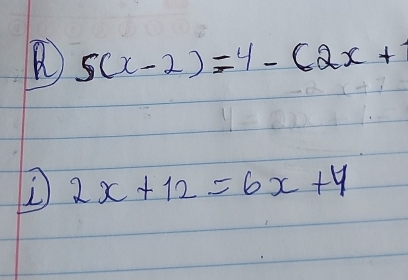 h) 5(x-2)=4-(2x+
i) 2x+12=6x+4